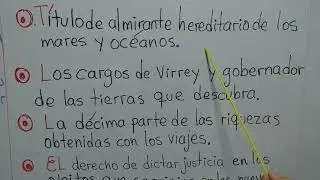 Título de almirante hereditario de los
mares y océanos.
Los cargos de Virrey y gobernador
de las tierras que descubra.
La décima parte de las riquezas
obtenidas con los viajes.
El derecho de dictar justicia en los